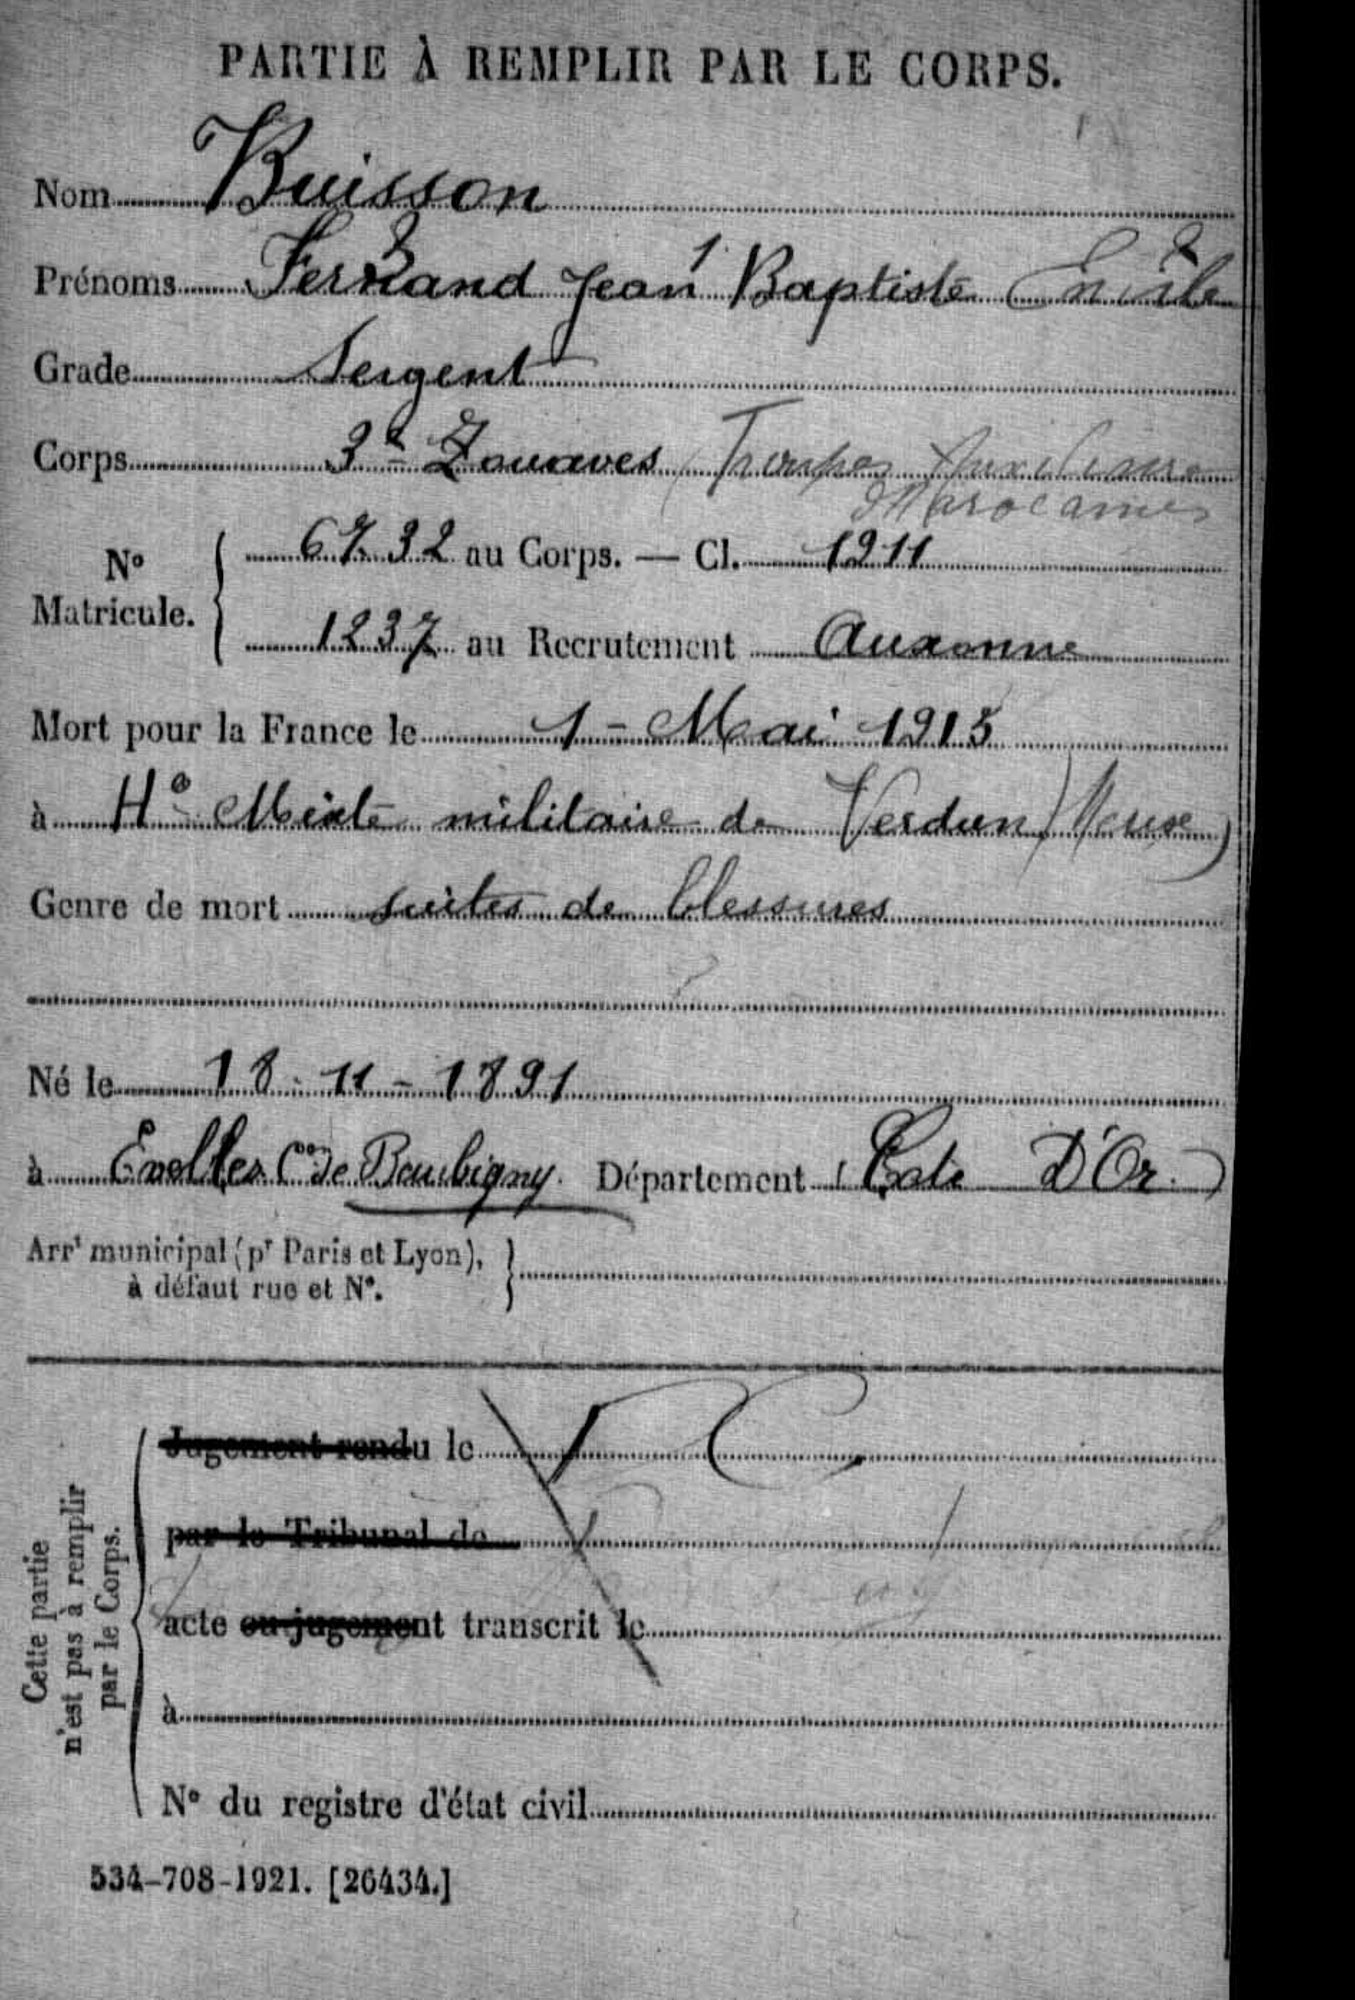 PARTIE À REMPLIR PAR LE CORPS.
Nom Buisson
Prénoms Fernand Jean Baptiste Emile
2 1 2
Grade Sergent
Corps 3e Zouaves Troupes Auxiliaires
Marocaines
No Matricule. 6732 au Corps. — Cl. 1911
1237 au Recrutement Auxonne
Mort pour la France le 1 - Mai 1915
à Hal Mixte militaire de Verdun (Meuse)
Genre de mort suites de blessures
Né le 18 - 11 - 1891
à Evelles Cne de Baubigny. Département (Cote D'Or.)
Arrt municipal (pr Paris et Lyon),
à défaut rue et No.
Cette partie
n'est pas à remplir
par le Corps.
Jugement rendu le
par le Tribunal de
acte ou jugement transcrit le
à
No du registre d'état civil
534-708-1921. [26434.]